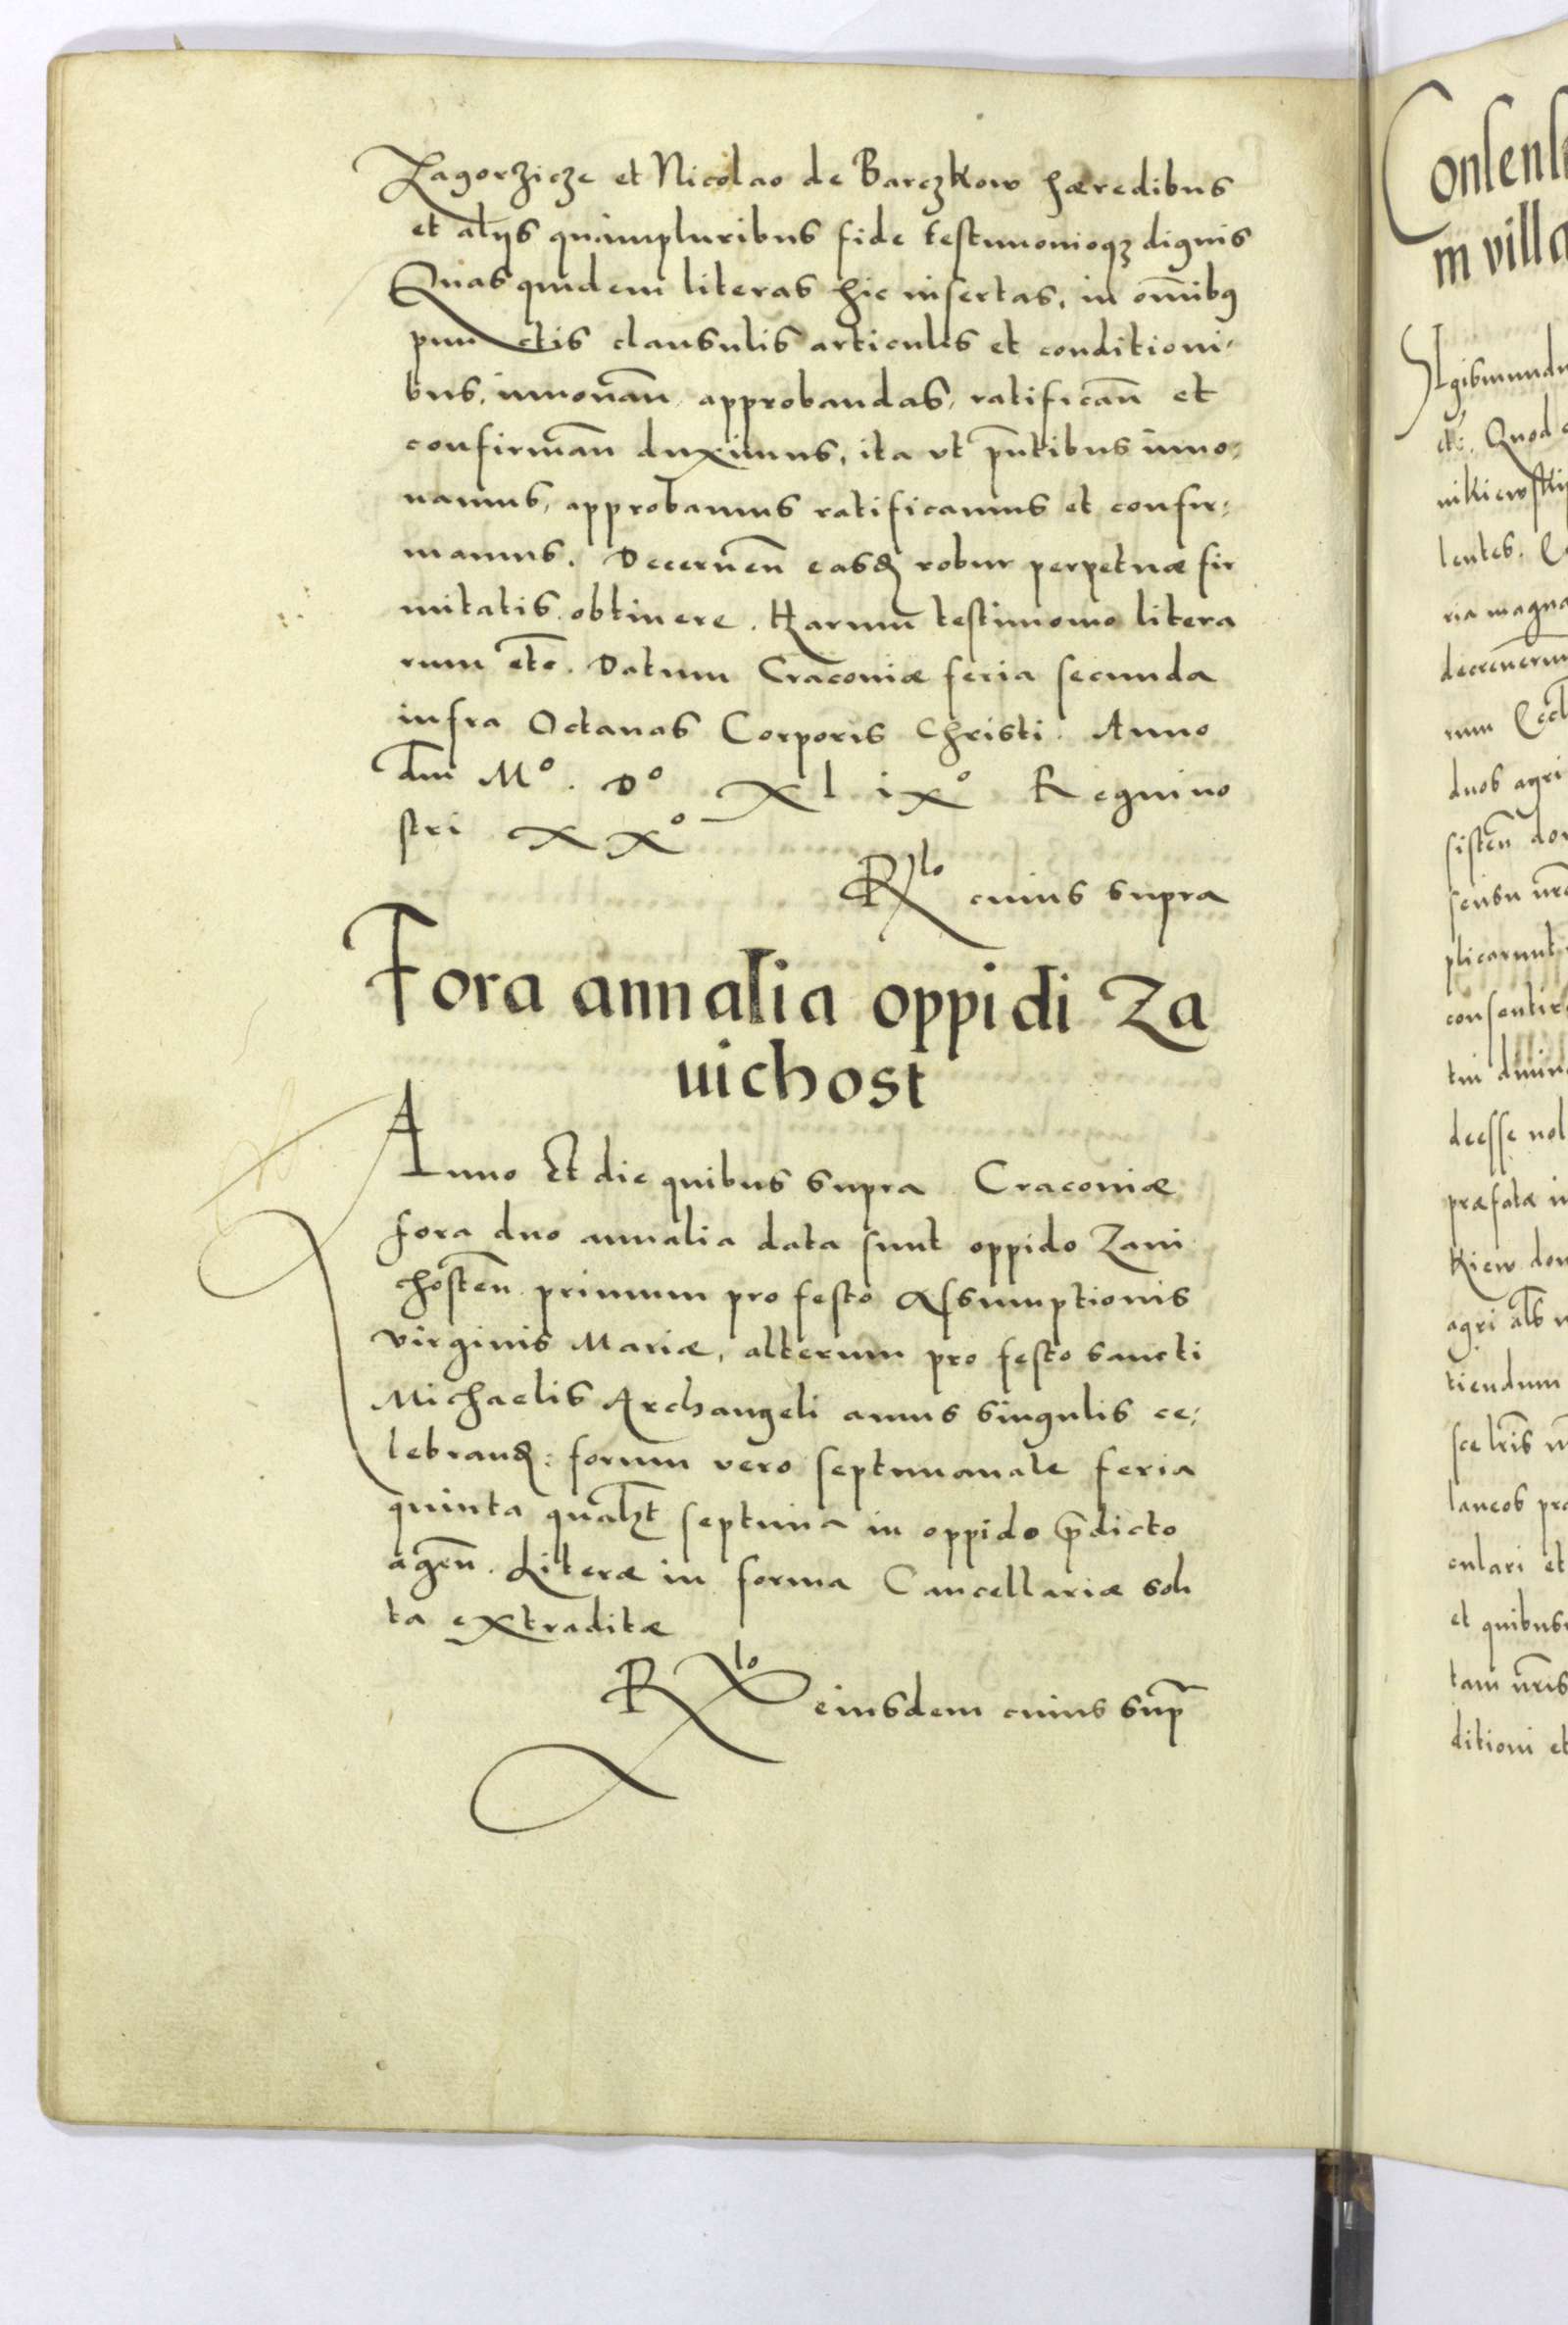 Zagorzicze et Nicolao de Barczkow hæredibus
et alijs quampluribus fide testimonioqʒ dignis
Quas quidem literas hic insertas, in om̄ibꝯ
punctis clausulis articulis et conditioni-
bus, innouan̄, approbandas, ratifican̄ et
confirman̄ duximus, ita vt p̄ntibus inno-
uamus, approbamus ratificamus et confir-
mamus. Decernen̄ easdꝫ robur perpetuæ fir
mitatis obtinere. Harum testimonio litera
rum etc̄. Datum Craconiæ feria secunda
infra Octauas Corporis Christi. Anno
dn̄i Mº. Dº Xl ixº Regni no
stri xxº
Rlo cuius supra
Fora annalia oppidi Za
uichost
Anno Et die quibus supra Cracouiæ
fora duo annalia data sunt oppido Zaui
chosten̄ primum pro festo Assumptionis
virginis Mariæ, alterum pro festo sancti
Michaelis Archangeli annis singulis ce-
lebrandꝫ: forum vero septimanale feria
quinta qual̄t septima in oppido p̄dicto
agen̄. Literæ in forma Cancellariæ soli
ta extraditæ
Rlo eiusdem cuius sup̄
Consens
in villa
SIgismundu
etc̄. Quod
nikiewski
lentes.
ria magna
decreuerim
rum Eccl
duos agri
sisten̄ do
sensu nr̄
plicarunt
consentir
tui diuin
deesse nol
præfatæ in
Kiew don
agri als
tiendum
sce lr̄is
laneos pr
culari et
et quibus
tam nr̄is
ditioni et